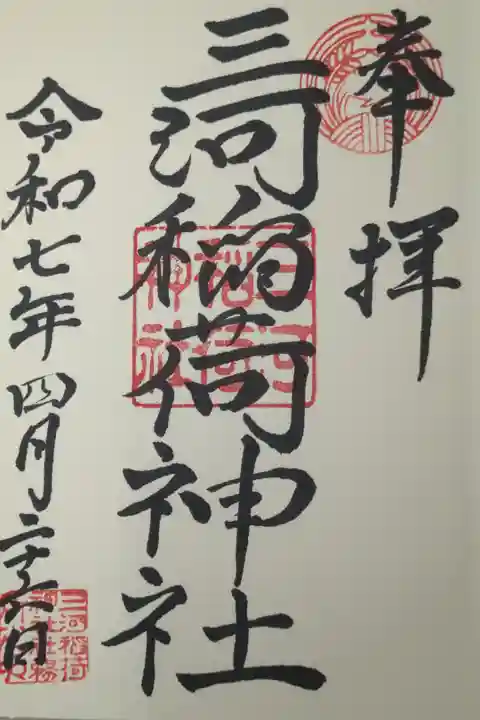 奉拝
三河稲荷神社
三河稲荷神社
令和七年四月二十六日
三河稲荷